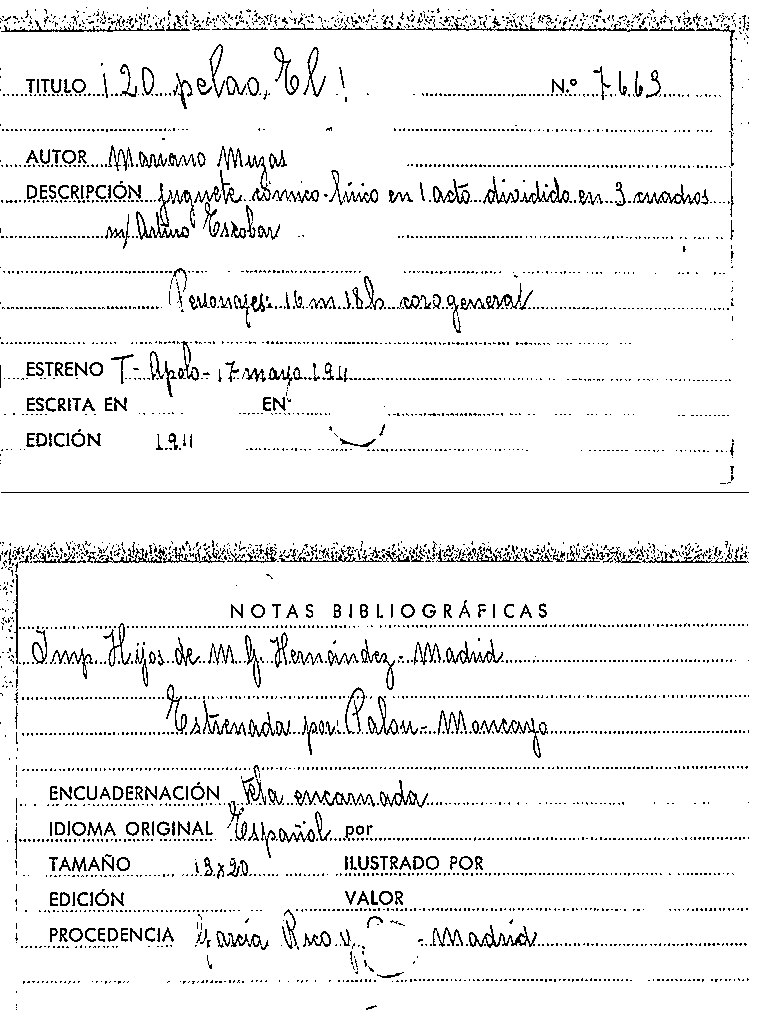 TITULO ¡20 pelao, El! N.º 7663
AUTOR Mariano Muzas
DESCRIPCIÓN Juguete cómico-lírico en 1 acto dividido en 3 cuadros
m/ Arturo Escobar
Personajes: 16 m 18 h coro general
ESTRENO T- Apolo- 17 mayo 1911
ESCRITA EN EN
EDICIÓN 1911
NOTAS BIBLIOGRÁFICAS
Imp. Hijos de M. G. Hernández- Madrid
Estrenada por: Palou- Moncayo
ENCUADERNACIÓN Tela encarnada
IDIOMA ORIGINAL Español por
TAMAÑO 13x20 ILUSTRADO POR
EDICIÓN VALOR
PROCEDENCIA García Rico y - Madrid